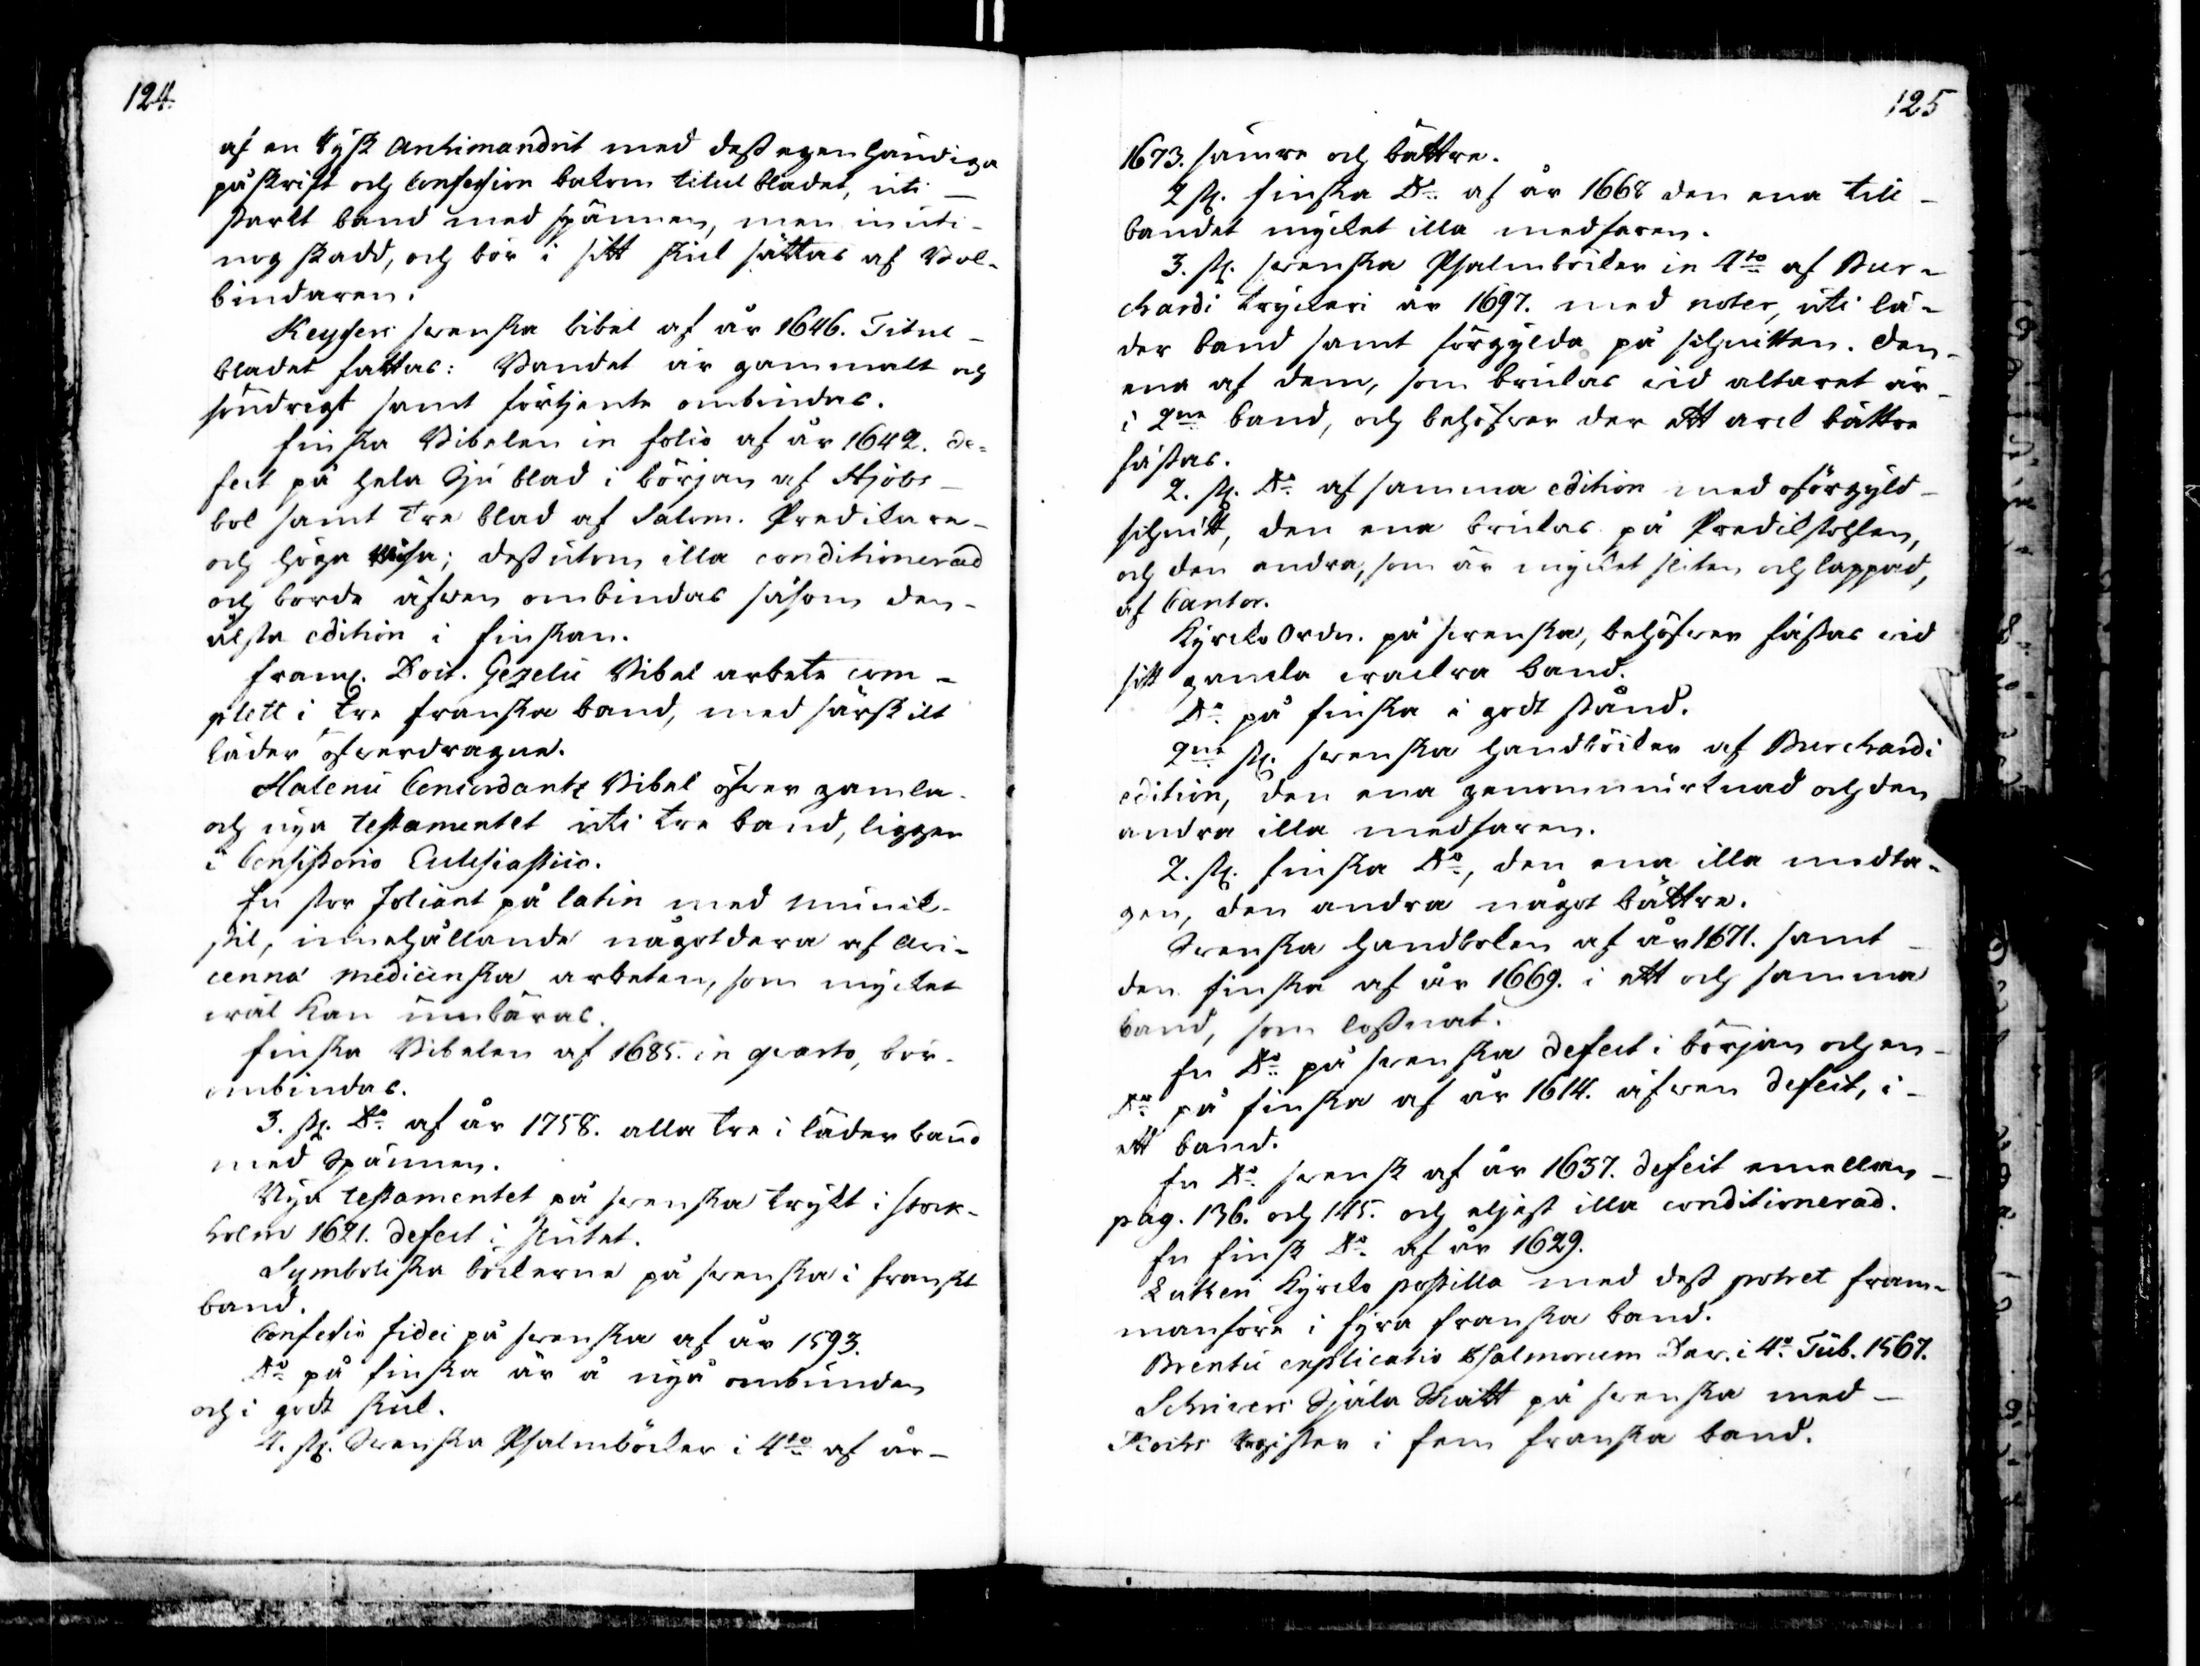 124.
af en Rysk Archimandrit med dess egenhändiga
påskrift och Confession bakom titul bladet, uti
starkt band med spännen, men inuti
nog skadd, och bör i sitt skick sättas af Bok-
bindaren.
Keysers svenska bibel af år 1646. Titul-
bladet fattas: Bandet är gammalt och
söndrigt samt förtjente ombindas.
Finska Bibelen in folio af år 1642. de-
fect på hela sju blad i början af Hjobs-
bok samt tre blad af Salom. Predikare-
och höga Visa; dessutom illa conditionerad
och borde äfven ombindas såsom den-
älsta edition i finskan.
Framl. Doct. Gezelii Bibel arbete com-
plett i tre franska band, med särskilt
läder öfverdragne.
Halenii Concordantz Bibel öfver gamla-
och nya testamentet uti tre band, ligger
i Consistorio Ecclesiastico.
En stor Foliant på latin med munck-
stil, innehållande någotdera af Avi-
cennæ medicinska arbeten, som mycket
wäl kan umbäras.
Finska Bibelen af 1685. in quarto, bör-
ombindas.
3. st. Do af år 1758. alla tre i läder band
med Spännen.
Nya testamentet på svenska trykt i Stock-
holm 1621. defect i slutet.
Symboliska böckerne på svenska i franskt
band.
Confessio fidei på svenska af år 1593.
Do på finska är å nya ombunden
och i godt skick.
4. st. Svenska Psalmböcker i 4to af år-
125
1673. sämre och bättre.
2 st. finska Do af år 1668 den ena till-
bandet mycket illa medfaren.
3. st. svenska Psalmböcker in 4to af Bur-
chardi tryckeri år 1697. med noter, uti lä-
der band samt förgylda på schnitten. Den-
ena af dem, som brukas wid altaret är-
i 2ne band, och behöfver der ett arck bättre
fästas.
2. st. Do af samma edition med oförgyld-
schnitt, den ena brukas på Predikstohlen,
och den andra, som är mycket sliten och lappad,
af Cantor.
Kyrcko Ordn. på svenska, behöfver fästas wid
sitt gamla wackra band.
Do på finska i godt stånd.
2ne st. svenska handböcker af Burchardi
edition, den ena genommurknad och den
andra illa medfaren.
2. st. finska Do, den ena illa medta-
gen, den andra något bättre.
Svenska handboken af år 1671. samt-
den finska af år 1669. i ett och samma
band, som lossnat.
En Do på svenska defect i början och en-
Do på finska af år 1614. äfven defect, i-
ett band.
En Do svensk af år 1637. defect emellan-
pag. 136. och 145. och eljest illa conditionerad.
En finsk Do af år 1629.
Lutheri Kyrcko postilla med dess potret fram-
manföre i fyra franska band.
Brentii explicatio Psalmorum Dav. i 4o. Tüb. 1567.
Schrivers Själa Skatt på svenska med-
Kochs Register i fem franska band.